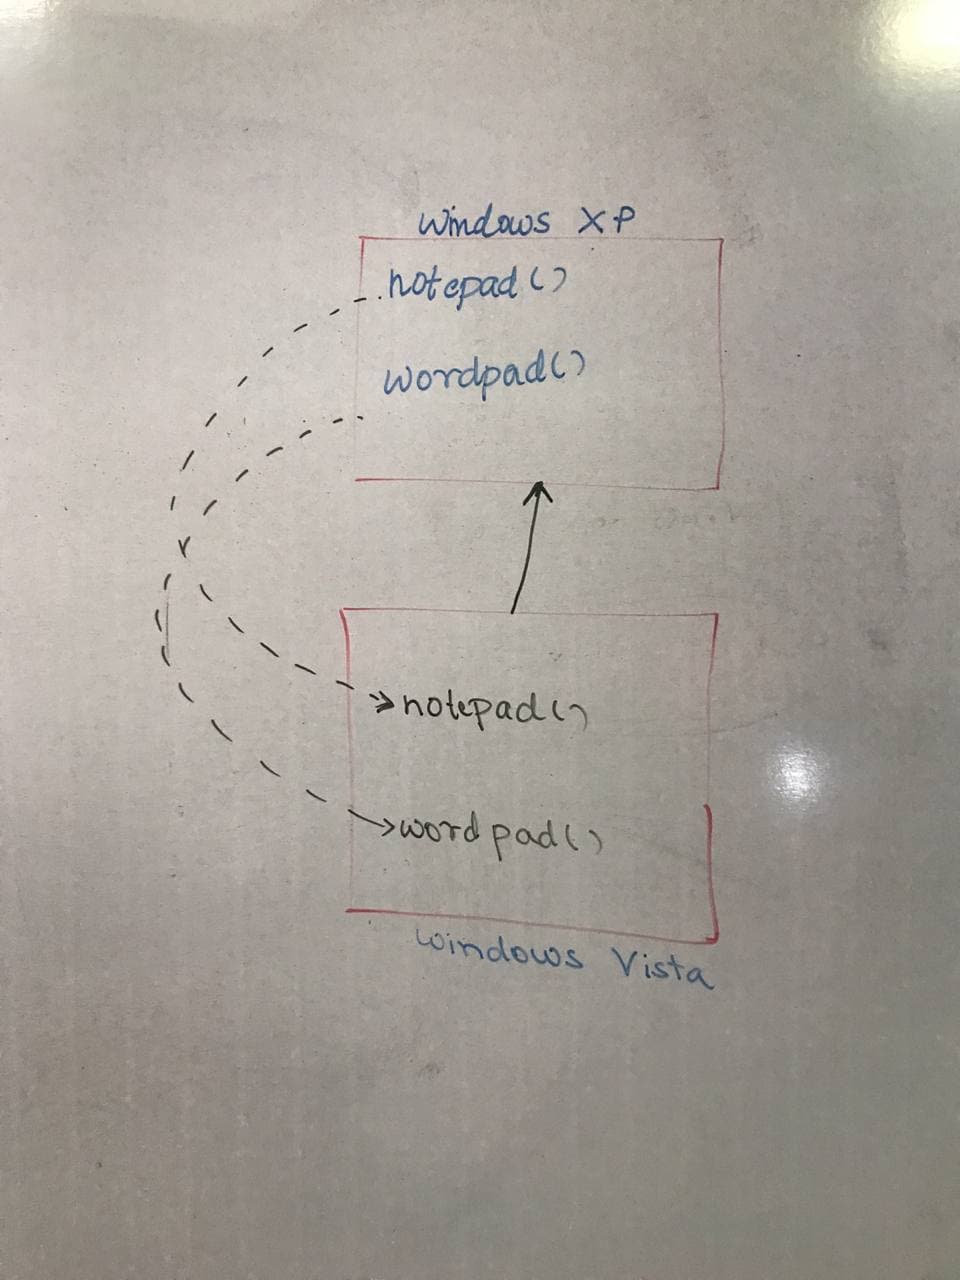 Windows XP
notepad()
wordpad()
notepad()
wordpad()
Windows Vista